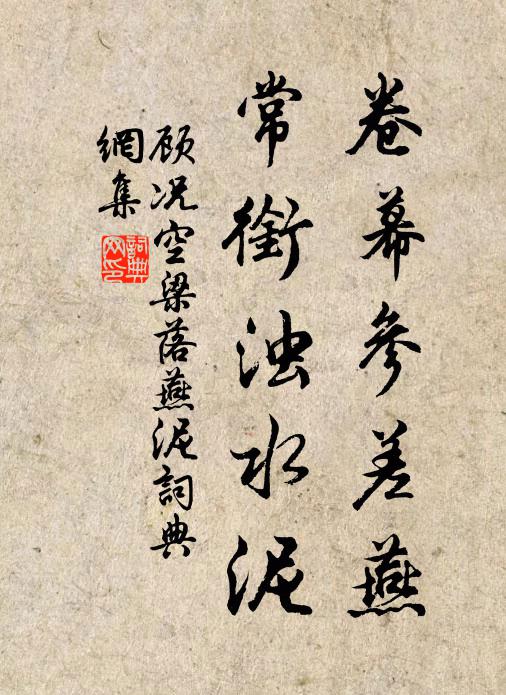 卷幕参差燕
常銜浊水泥
顾况空梁落燕泥詞典
網集
詞典网印